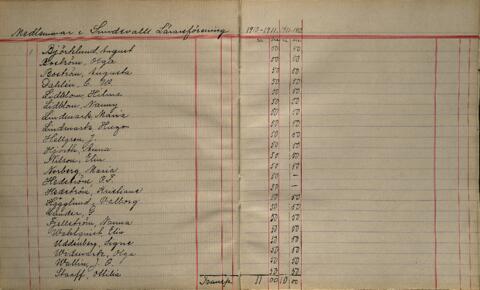 Medlemmar i Sundsvalls Lärareförening 1910-1911. 1911-1912
1 Björklund, August 50 50
Boström, Olga 50 50
Boström, Augusta 50 50
Dahlin, E. W. 50 50
Lidblom, Hilma 50 50
Lidblom, Nanny 50 50
Lindmark, Maria 50 50
Lindmark, Hugo 50 50
Hellgren, J. 50 50
Hjorth, Anna 50 50
Nilsson, Elin 50 50
Norberg, Maria 50 —
Hedström, P. J. 50 —
Hedström, Kristiane 50 —
Hägglund, Valborg 50 50
Lander, G. 50 50
Fjellström, Nanna 50 50
Wahlquist, Elin 50 50
Uddenberg, Signe 50 50
Wedmark, Olga 50 50
Wallin, J. O. 50 50
Staaff, Ottilia 50 50
Transp. 11 00 10 00